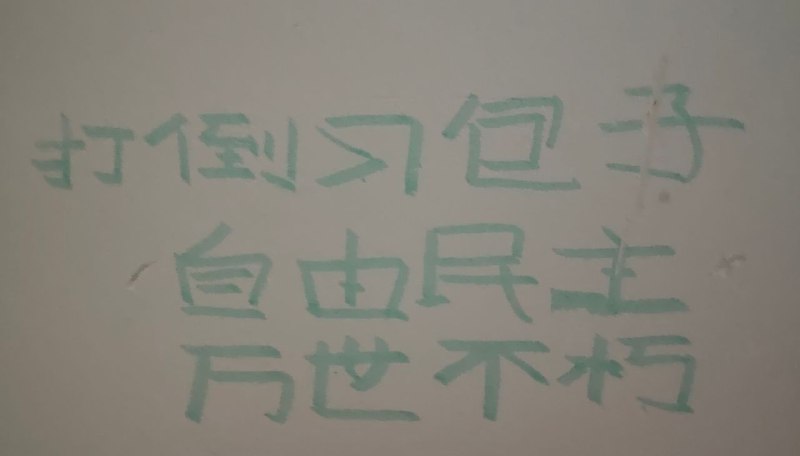 打倒习包子
自由民主
万世不朽